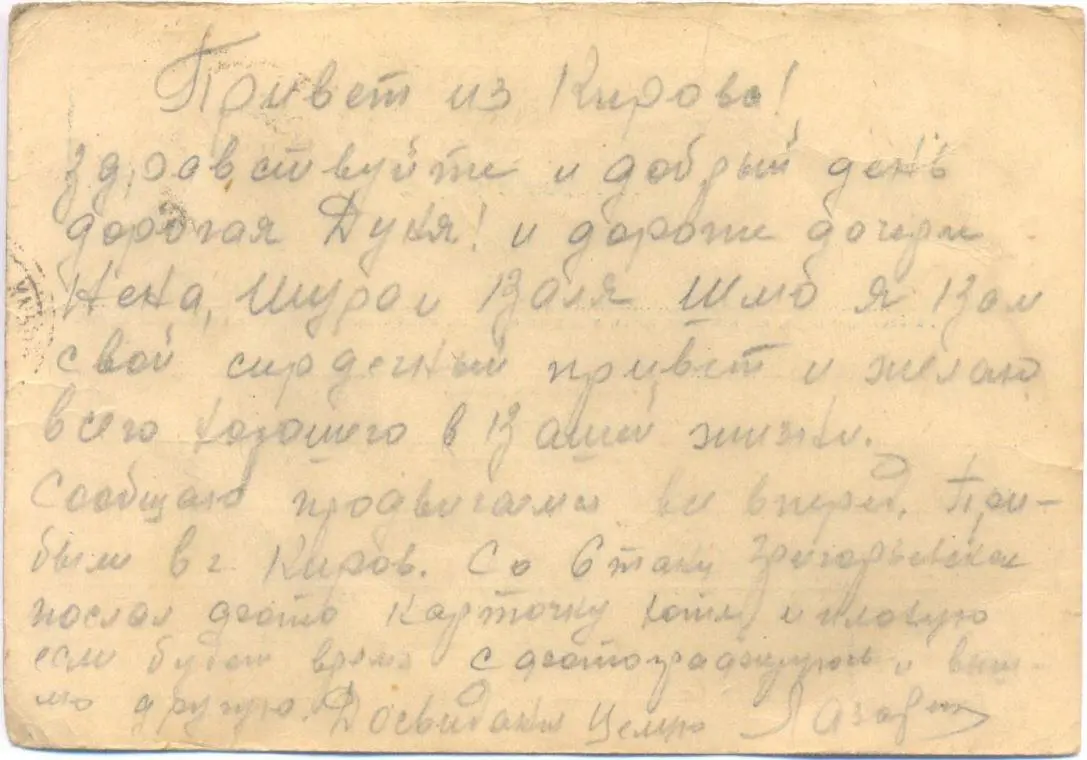 Привет из Кирова!
Здравствуйте и добрый день
дорогая Дуня! и дорогие дочери
Нена, Шура и Валя Шлю я Вам
свой сердечный привет и желаю
всего хорошего в Вашей жизни.
Сообщаю продвигаемся все вперед. При-
были в г Киров. Со Станц Григорьевская
послал фото карточку хотя и плохую
если будет время сфотографируюсь и выш-
лю другую. Досвидания Целую Лазарев